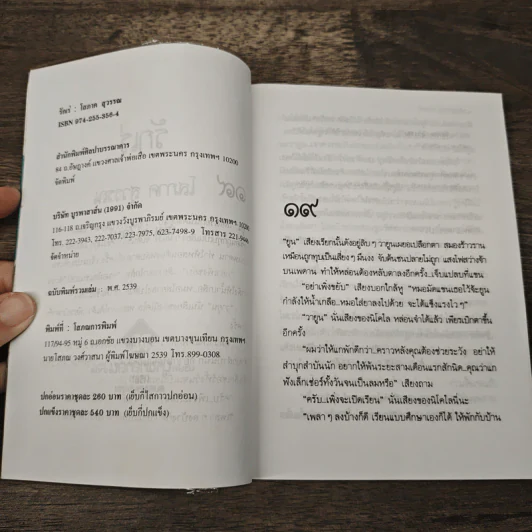 รัตเร่ : โสภาค สุวรรณ
ISBN 974-255-356-4
สำนักพิมพ์ศิลปาบรรณาคาร
84 ถ.อัษฎางค์ แขวงศาลเจ้าพ่อเสือ เขตพระนคร กรุงเทพฯ 10200
จัดพิมพ์
บริษัท บูรพาสาส์น (1991) จำกัด
116-118 ถ.เจริญกรุง แขวงวังบูรพาภิรมย์ เขตพระนคร กรุงเทพฯ 10200
โทร. 222-3943, 222-7037, 223-7975, 623-7498-9 โทรสาร 221-
จัดจำหน่าย
ฉบับพิมพ์รวมเล่ม : พ.ศ. 2539
พิมพ์ที่ : โสภณการพิมพ์
117/94-95 หมู่ 6 ถ.เอกชัย แขวงบางบอน เขตบางขุนเทียน กรุงเทพฯ
นายโสภณ วงศ์วาสนา ผู้พิมพ์โฆษณา 2539 โทร.899-0308
ปกอ่อนราคาชุดละ 260 บาท (เย็บกี่ไสกาวปกอ่อน)
ปกแข็งราคาชุดละ 540 บาท (เย็บกี่ปกแข็ง)
๑๙
"ยูน" เสียงเรียกนั้นดังอยู่ลิบๆ วายูนเผยอเปลือกตา สมองร้าวราน
เหมือนถูกทุบเป็นเสี่ยงๆ มึนงง จับต้นชนปลายไม่ถูก แสงไฟสว่างจ้า
บนเพดาน ทำให้หล่อนต้องหลับตาลงอีกครั้ง..เจ็บแปลบที่แขน
"อย่าเพิ่งขยับ" เสียงบอกใกล้หู "หมอมัดแขนเธอไว้จ้ะยูน
กำลังให้น้ำเกลือ..หมอใส่ยาลงไปด้วย จะได้แข็งแรงไวๆ"
"วายูน" นั่นเสียงของนิโคไล หล่อนจำได้แล้ว เพียรเบิกตาขึ้น
อีกครั้ง
"ผมว่าให้แกพักดีกว่า..คราวหลังคุณต้องช่วยระวัง อย่าให้
ลำบุกลำบันนัก อยากให้พ้นระยะสามเดือนแรกสักนิด..คุณว่าแก
ฟังเล็กเชอร์ทั้งวันจนเป็นลมหรือ" เสียงถาม
"ครับ..เพิ่งจะเปิดเรียน" นั่นเสียงของนิโคไลนี่นะ
"เพลาๆ ลงบ้างก็ดี เรียนแบบศึกษาเองก็ได้ ให้พักกับบ้าน